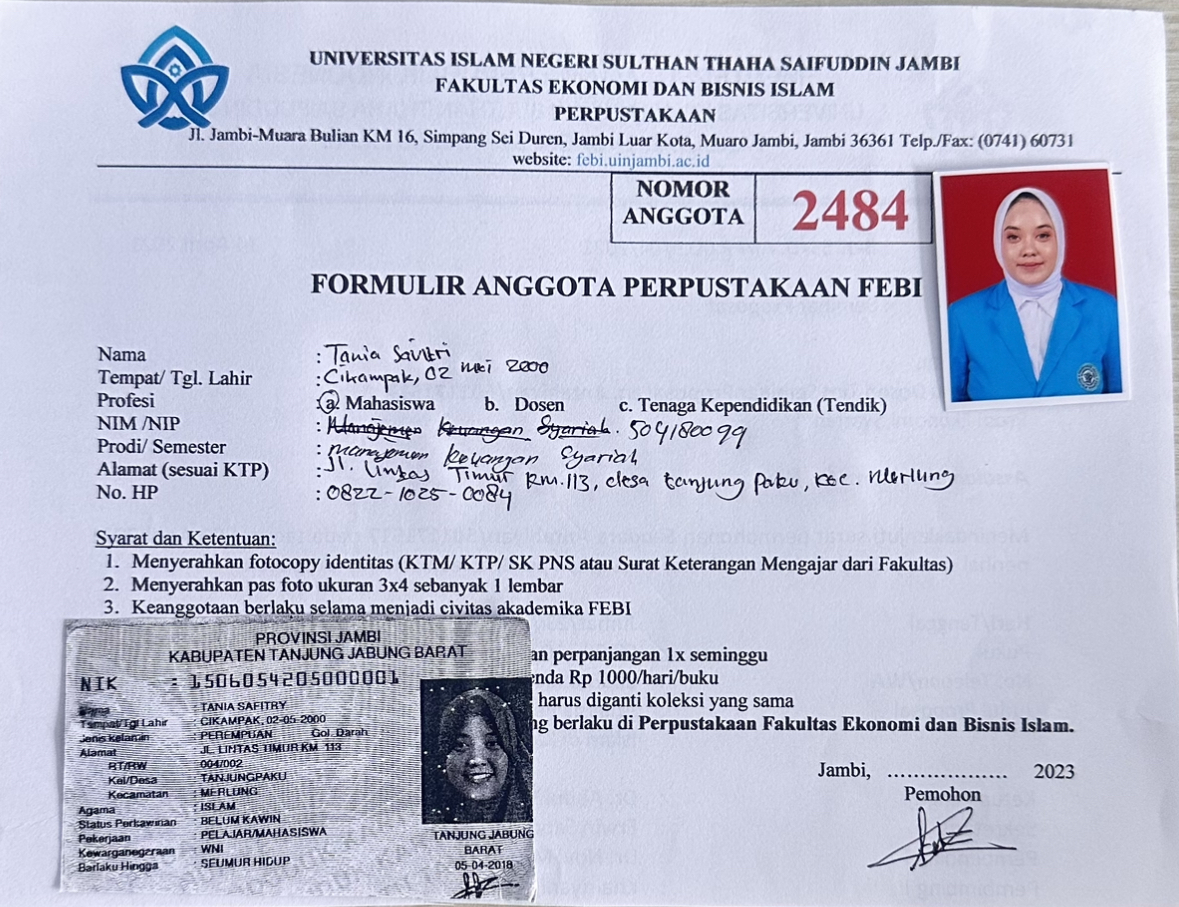 UNIVERSITAS ISLAM NEGERI SULTHAN THAHA SAIFUDDIN JAMBI
FAKULTAS EKONOMI DAN BISNIS ISLAM
PERPUSTAKAAN
Jl. Jambi-Muara Bulian KM 16, Simpang Sei Duren, Jambi Luar Kota, Muaro Jambi, Jambi 36361 Telp./Fax: (0741) 60731
website: febi.uinjambi.ac.id
NOMOR ANGGOTA 2484
FORMULIR ANGGOTA PERPUSTAKAAN FEBI
Nama : Tania Savitri
Tempat/ Tgl. Lahir : Cikampak, 02 mei 2000
Profesi : a. Mahasiswa b. Dosen c. Tenaga Kependidikan (Tendik)
NIM /NIP : Manajemen Keuangan Syariah. 504180099
Prodi/ Semester : manajemen keuangan syariah
Alamat (sesuai KTP) : Jl. lintas Timur KM.113, desa tanjung paku, kec. Merlung
No. HP : 0822-1025-0084
Syarat dan Ketentuan:
1. Menyerahkan fotocopy identitas (KTM/ KTP/ SK PNS atau Surat Keterangan Mengajar dari Fakultas)
2. Menyerahkan pas foto ukuran 3x4 sebanyak 1 lembar
3. Keanggotaan berlaku selama menjadi civitas akademika FEBI
an perpanjangan 1x seminggu
enda Rp 1000/hari/buku
harus diganti koleksi yang sama
ng berlaku di Perpustakaan Fakultas Ekonomi dan Bisnis Islam.
PROVINSI JAMBI
KABUPATEN TANJUNG JABUNG BARAT
NIK : 1506054205000001
Nama : TANIA SAFITRY
Tempat/Tgl Lahir : CIKAMPAK, 02-05-2000
Jenis Kelamin : PEREMPUAN Gol. Darah
Alamat : JL. LINTAS TIMUR KM 113
RT/RW : 004/002
Kel/Desa : TANJUNGPAKU
Kecamatan : MERLUNG
Agama : ISLAM
Status Perkawinan : BELUM KAWIN
Pekerjaan : PELAJAR/MAHASISWA
Kewarganegaraan : WNI
Berlaku Hingga : SEUMUR HIDUP
TANJUNG JABUNG
BARAT
05-04-2018
Jambi, .................. 2023
Pemohon